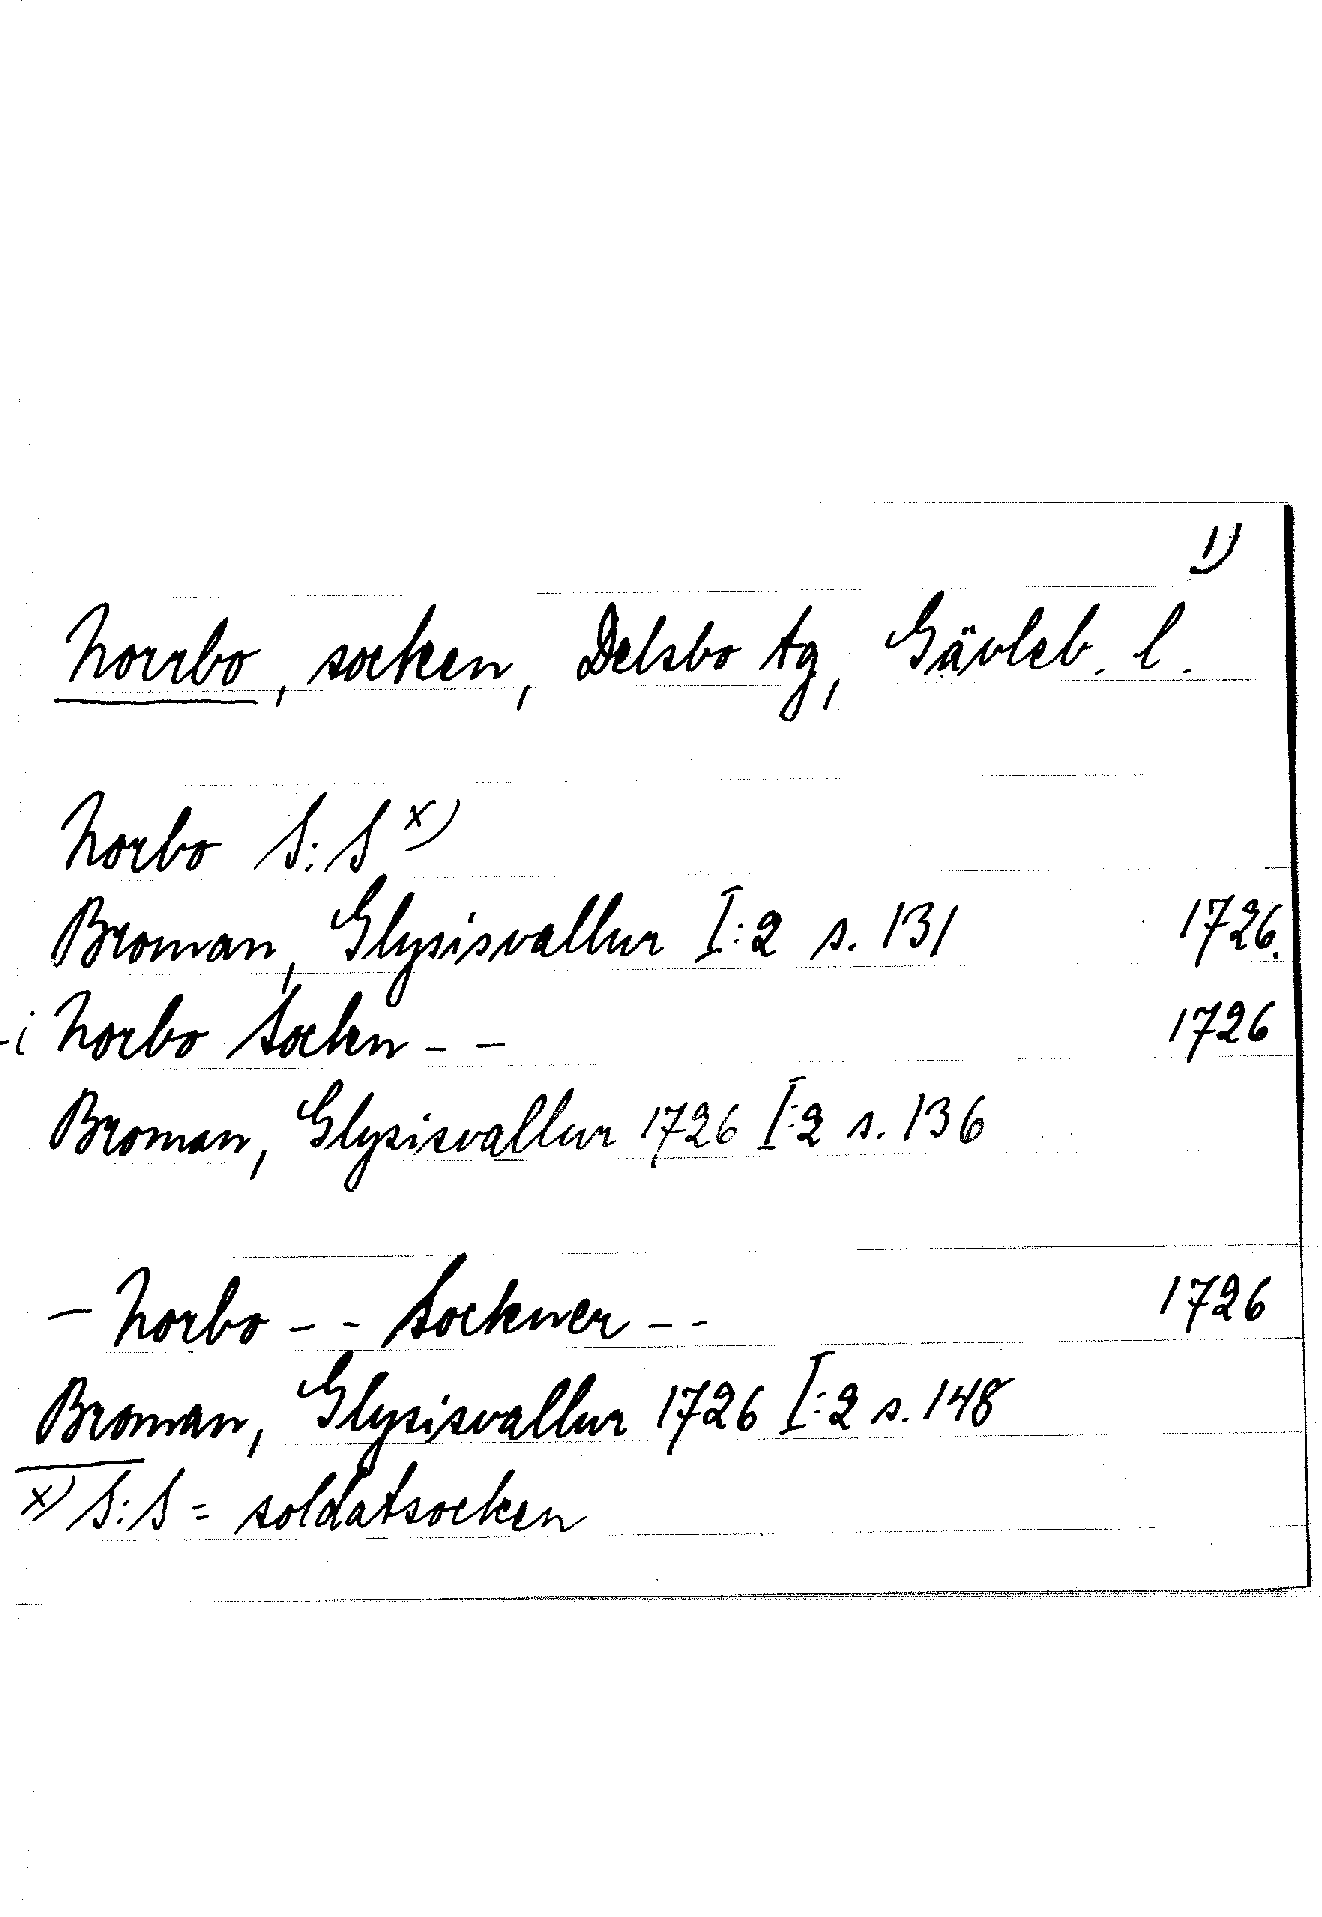 1)
Norrbo, socken, Delsbo tg, Gävleb. l.
Norbo S:S x)
Broman, Glysisvallur I:2 s. 131 1726.
- i Norbo Sockn - - 1726
Broman, Glysisvallur 1726 I:2 s. 136
- Norbo - - Sockner - - 1726
Broman, Glysisvallur 1726 I:2 s. 148
x) S:S = soldatsocken